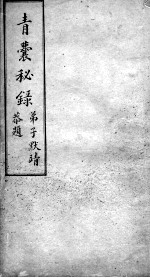 青囊秘錄
弟子默靖
恭題